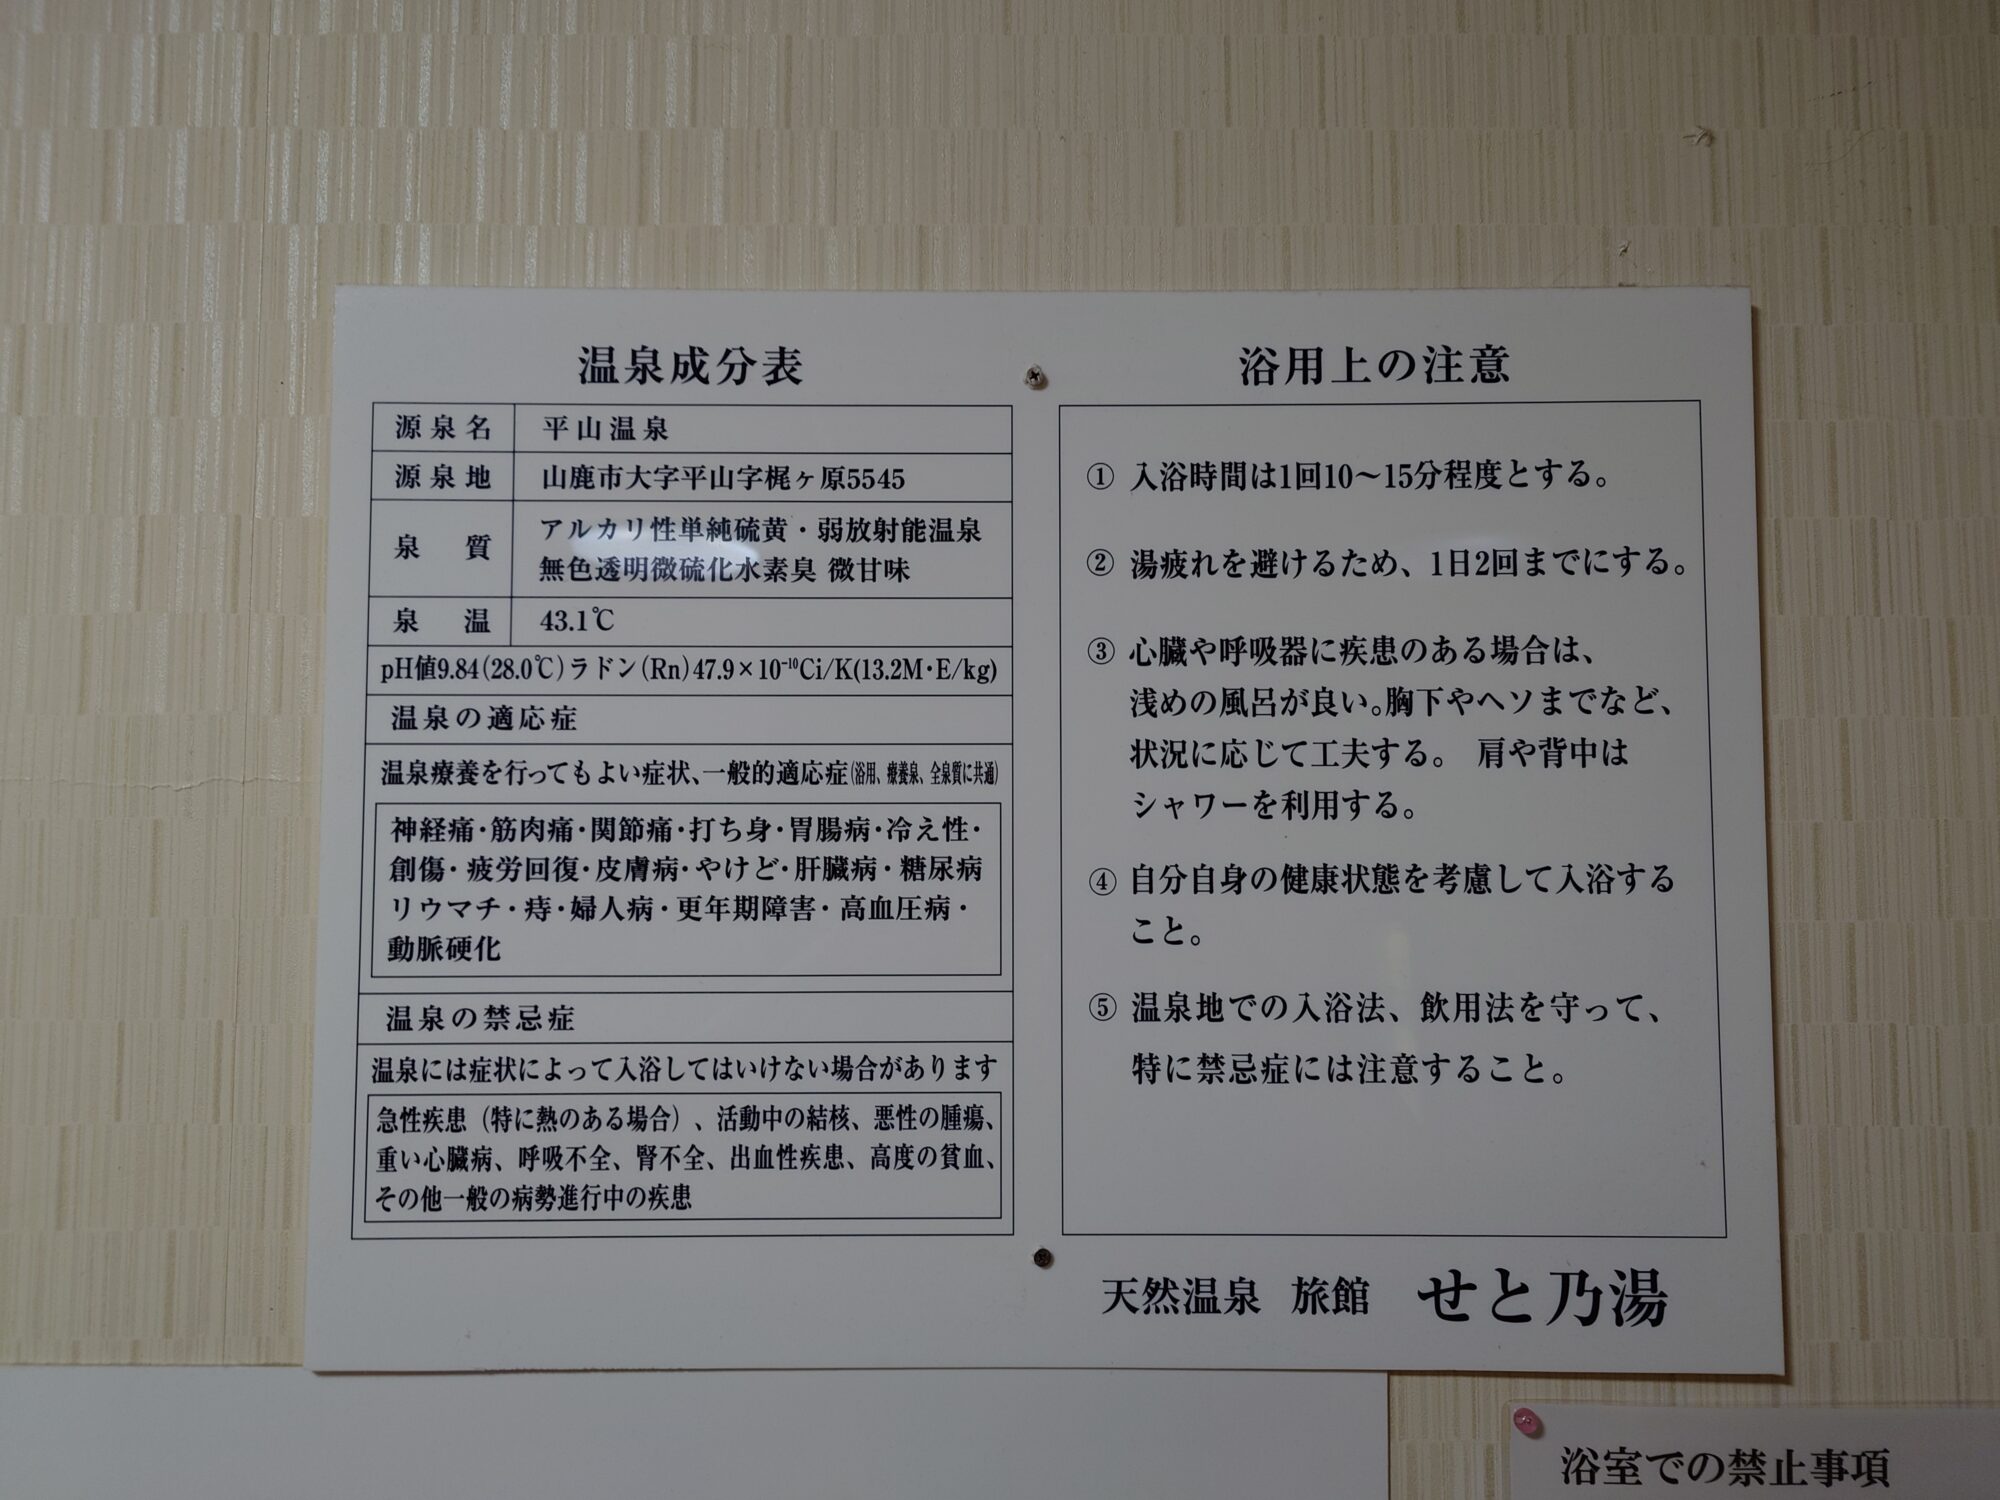 温泉成分表
源泉名 平山温泉
源泉地 山鹿市大字平山字梶ヶ原5545
泉質 アルカリ性単純硫黄・弱放射能温泉
無色透明微硫化水素臭 微甘味
泉温 43.1℃
pH値9.84(28.0℃)ラドン(Rn)47.9×10⁻¹⁰Ci/K(13.2M・E/kg)
温泉の適応症
温泉療養を行ってもよい症状、一般的適応症(浴用、療養泉、全泉質に共通)
神経痛・筋肉痛・関節痛・打ち身・胃腸病・冷え性・
創傷・疲労回復・皮膚病・やけど・肝臓病・糖尿病
リウマチ・痔・婦人病・更年期障害・高血圧病・
動脈硬化
温泉の禁忌症
温泉には症状によって入浴してはいけない場合があります
急性疾患（特に熱のある場合）、活動中の結核、悪性の腫瘍、
重い心臓病、呼吸不全、腎不全、出血性疾患、高度の貧血、
その他一般の病勢進行中の疾患
浴用上の注意
① 入浴時間は1回10〜15分程度とする。
② 湯疲れを避けるため、1日2回までにする。
③ 心臓や呼吸器に疾患のある場合は、
浅めの風呂が良い。胸下やヘソまでなど、
状況に応じて工夫する。 肩や背中は
シャワーを利用する。
④ 自分自身の健康状態を考慮して入浴する
こと。
⑤ 温泉地での入浴法、飲用法を守って、
特に禁忌症には注意すること。
天然温泉 旅館 せと乃湯
浴室での禁止事項